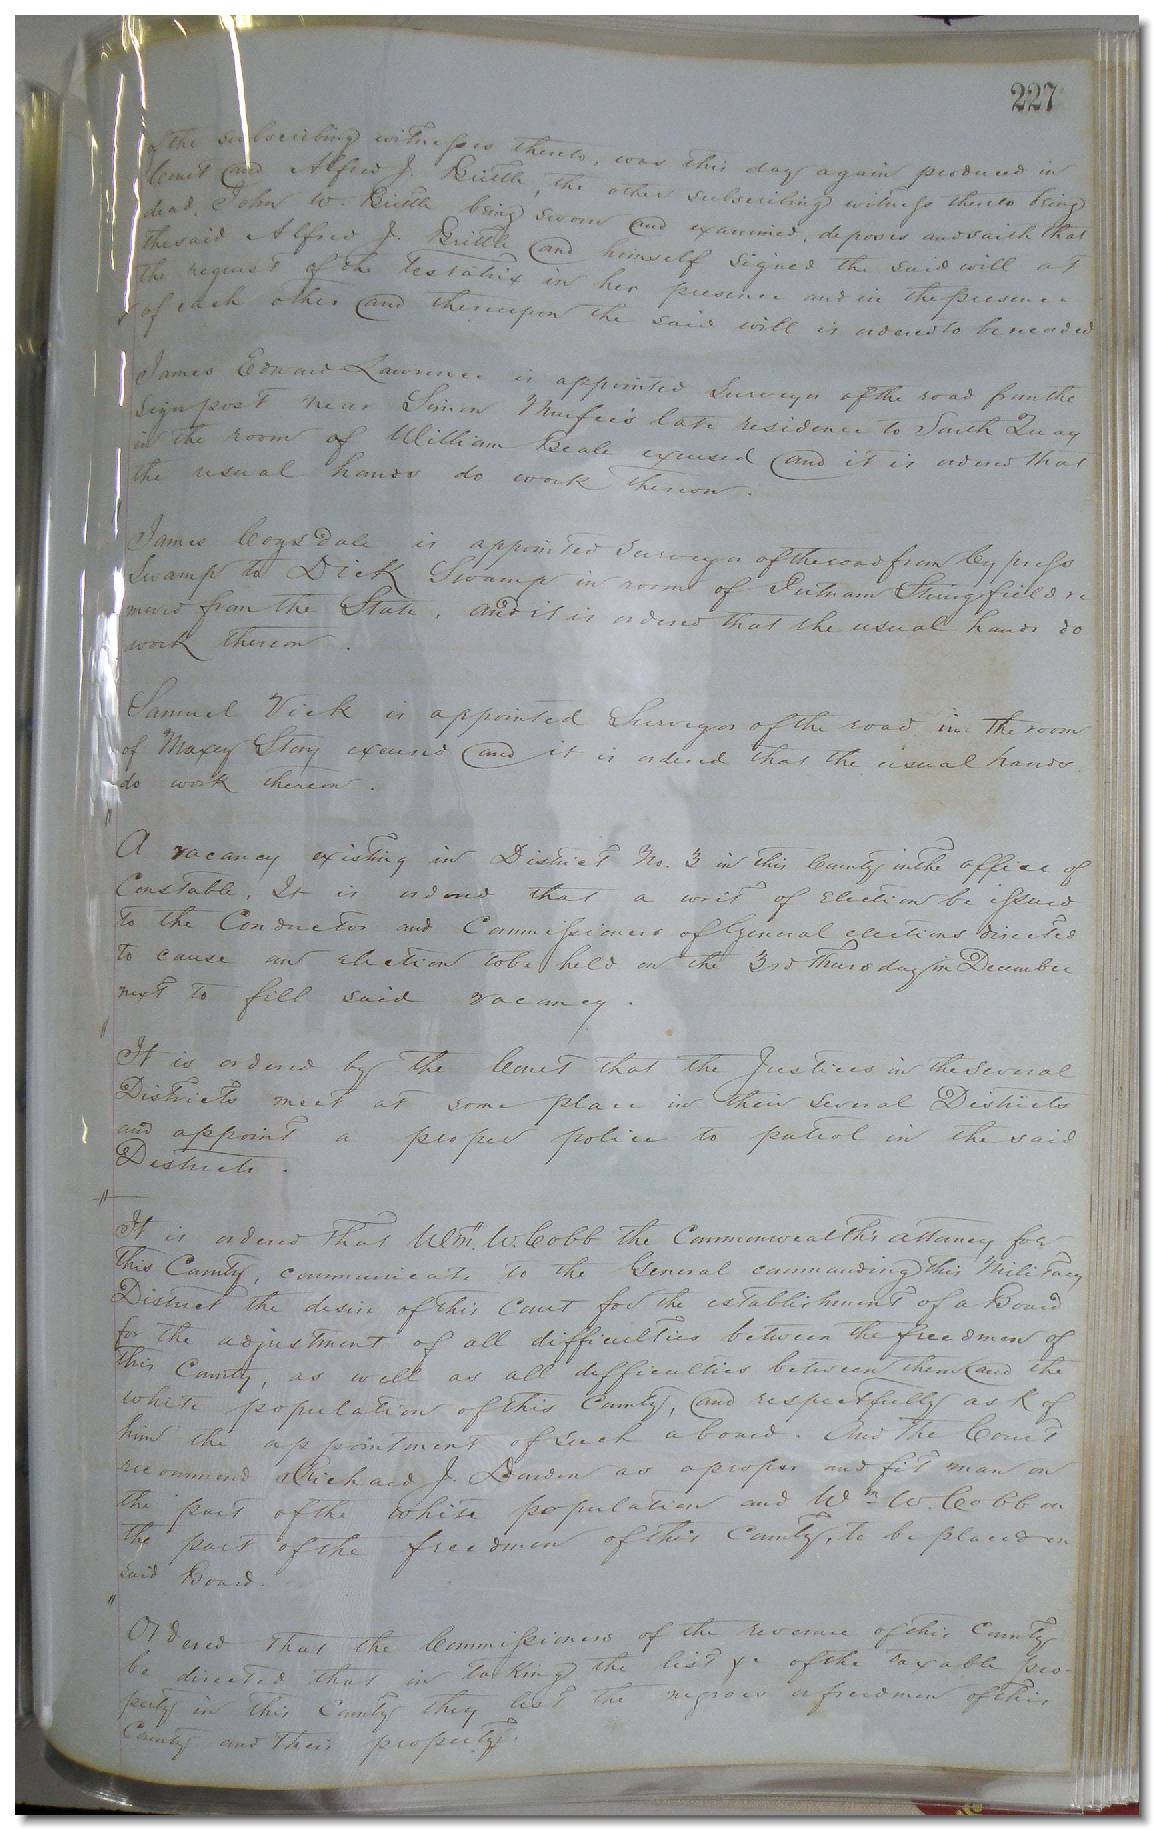 227
of the subscribing witnesses thereto, was this day again produced in
Court and Alfred J. Brittle, the other subscribing witness thereto being
dead. John W. Brittle being sworn and examined, deposes and saith that
the said Alfred J. Brittle and himself signed the said will at
the request of the testatrix in her presence and in the presence
of each other and thereupon the said will is ordered to be recorded
James Edward Lawrence is appointed Surveyor of the road from the
Sign post near Simon Murfee's late residence to South Quay
in the room of William Beale excused and it is ordered that
the usual hands do work thereon.
James Cogsdale is appointed Surveyor of the road from Cypress
Swamp to Dick Swamp in room of Putnam Stringfield re
moved from the State, and it is ordered that the usual hands do
work thereon.
Samuel Vick is appointed Surveyor of the road in the room
of Maxey Story excused and it is ordered that the usual hands
do work thereon.
A vacancy existing in District No. 3 in this County in the office of
Constable, It is ordered that a writ of Election be issued
to the Conductor and Commissioners of General elections directed
to cause an election to be held on the 3rd Thursday in December
next to fill said vacancy.
It is ordered by the Court that the Justices in the several
Districts meet at some place in their several Districts
and appoint a proper police to patrol in the said
Districts.
It is ordered that Wm. W. Cobb the Commonwealth's attorney for
this County, communicate to the General commanding this Military
District the desire of this Court for the establishment of a Board
for the adjustment of all difficulties between the freedmen of
this County, as well as all difficulties between them and the
white population of this County, and respectfully ask of
him the appointment of such a board. And the Court
recommend Richard J. Darden as a proper and fit man on
the part of the white population and Wm. W. Cobb on
the part of the freedmen of this County, to be placed on
said Board.
Ordered that the Commissioners of the revenue of this County
be directed that in taking the list &c of the taxable pro-
perty in this County they list the negroes or freedmen of this
County and their property.